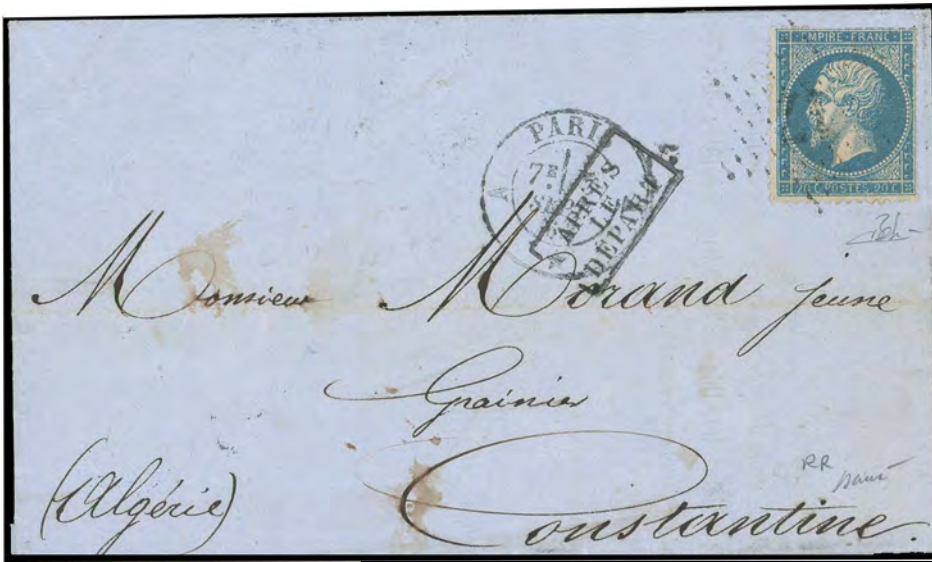 EMPIRE FRANC
20 C POSTES 20 C
PARI
A
7E
APRÈS
LE
DÉPART
Monsieur Morand jeune
Grainier
(Algérie)
Constantine.
RR